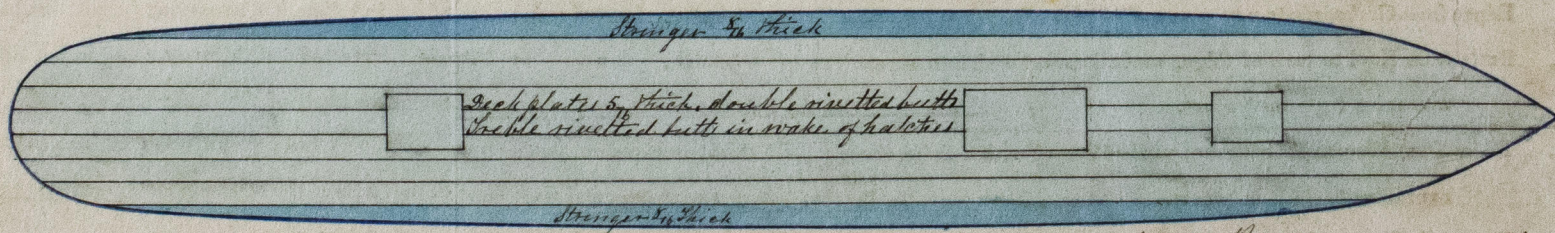 Stringer 8/16 thick
Deck plates 5/16 thick, double rivetted butts
Treble rivetted butts in wake of hatches
Stringer 8/16 Thick